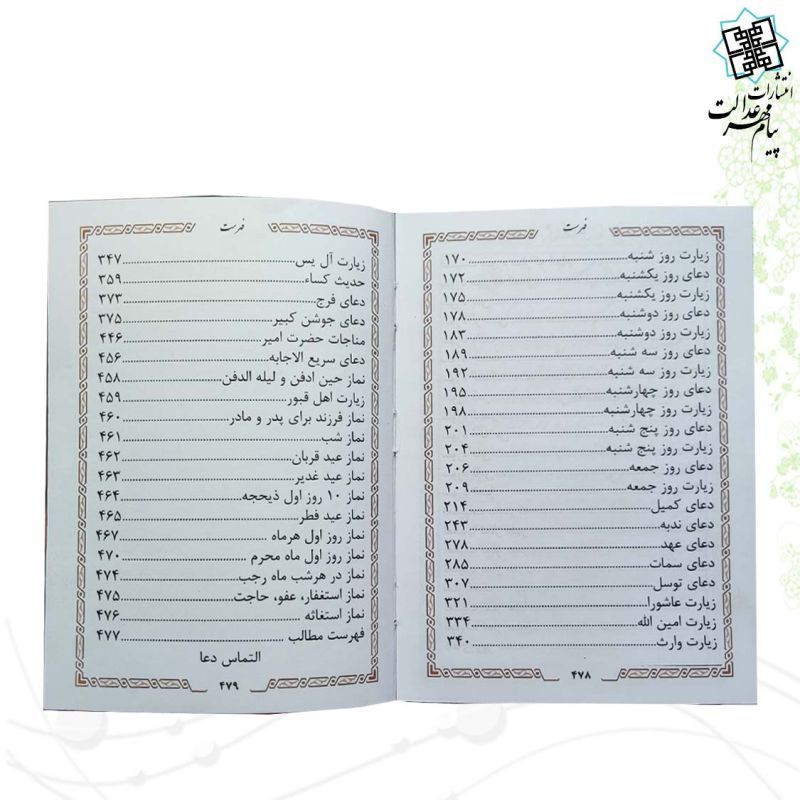 انتشارات
پیام مهر عدالت
فهرست
زیارت روز شنبه................۱۷۰
دعای روز یکشنبه................۱۷۲
زیارت روز یکشنبه................۱۷۵
دعای روز دوشنبه................۱۷۸
زیارت روز دوشنبه................۱۸۳
دعای روز سه شنبه................۱۸۹
زیارت روز سه شنبه................۱۹۲
دعای روز چهارشنبه................۱۹۵
زیارت روز چهارشنبه................۱۹۸
دعای روز پنج شنبه................۲۰۱
زیارت روز پنج شنبه................۲۰۴
دعای روز جمعه................۲۰۶
زیارت روز جمعه................۲۰۹
دعای کمیل................۲۱۴
دعای ندبه................۲۴۳
دعای عهد................۲۷۸
دعای سمات................۲۸۵
دعای توسل................۳۰۷
زیارت عاشورا................۳۲۱
زیارت امین الله................۳۳۴
زیارت وارث................۳۴۰
۴۷۸
فهرست
زیارت آل یس................۳۴۷
حدیث کساء................۳۵۹
دعای فرج................۳۷۳
دعای جوشن کبیر................۳۷۵
مناجات حضرت امیر................۴۴۶
دعای سریع الاجابه................۴۵۶
نماز حین ادفن و لیله الدفن................۴۵۸
زیارت اهل قبور................۴۵۹
نماز فرزند برای پدر و مادر................۴۶۰
نماز شب................۴۶۱
نماز عید قربان................۴۶۲
نماز عید غدیر................۴۶۳
نماز ۱۰ روز اول ذیحجه................۴۶۴
نماز عید فطر................۴۶۵
نماز روز اول هرماه................۴۶۷
نماز روز اول ماه محرم................۴۷۰
نماز در هرشب ماه رجب................۴۷۴
نماز استغفار، عفو، حاجت................۴۷۵
نماز استغاثه................۴۷۶
فهرست مطالب................۴۷۷
التماس دعا
۴۷۹